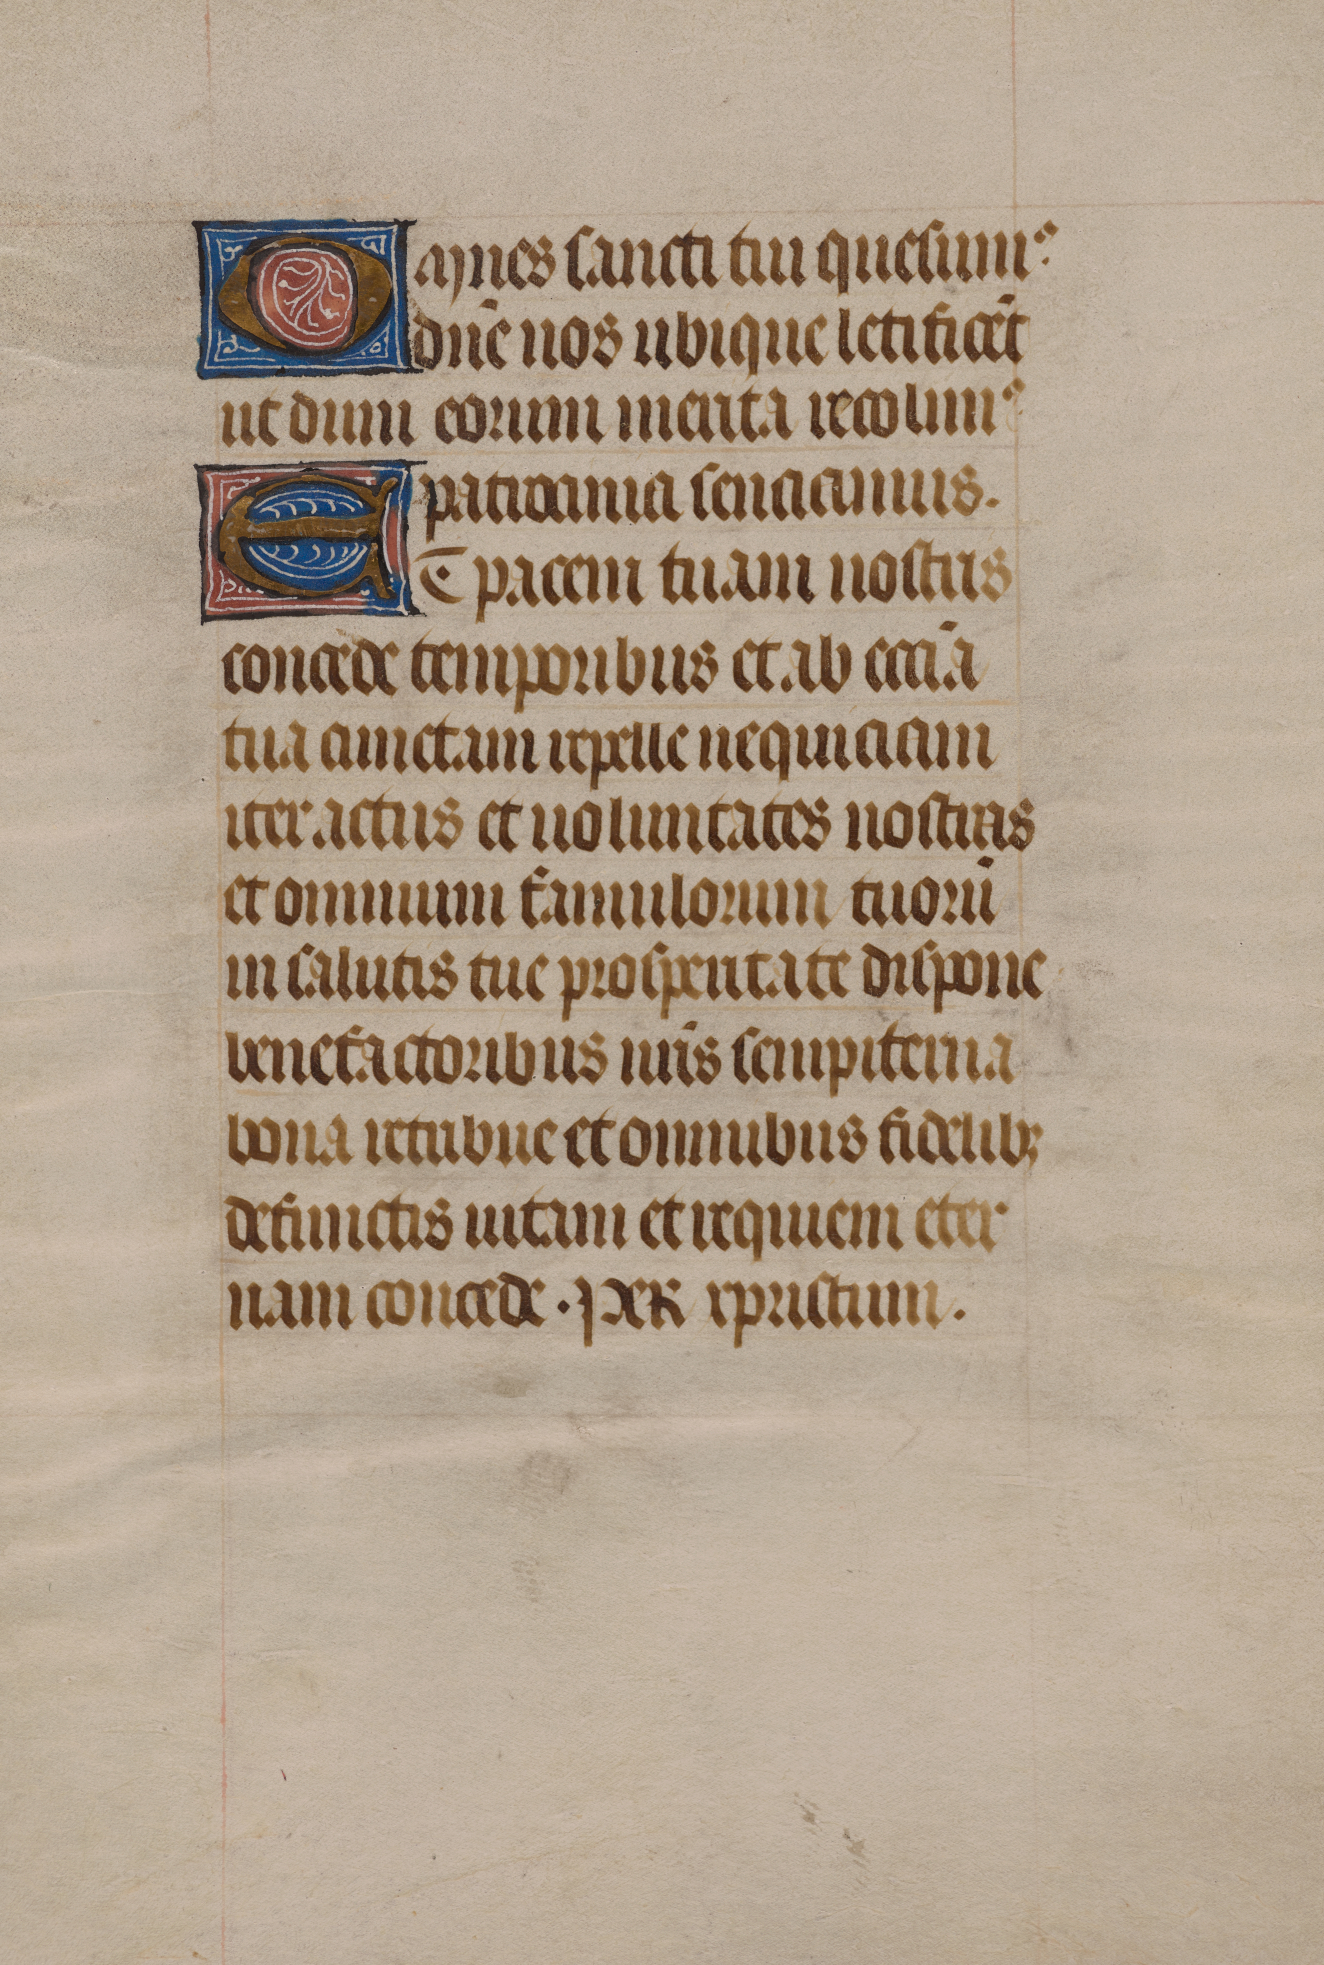 Omnes sancti tui quesumꝰ
dn̄e nos ubique letificēt
ut dum eorum merita recolimꝰ
patrocinia senciamus.
Et pacem tuam nostris
concede temporibus et ab eccīa
tua cunctam repelle nequiciam
iter actus et uoluntates nostras
et omnium famulorum tuorū
in salutis tue prosperitate dispone
benefactoribus nr̄is sempiterna
bona retribue et omnibus fidelibꝫ
defunctis uitam et requiem eter
nam concede. PER xpristum.